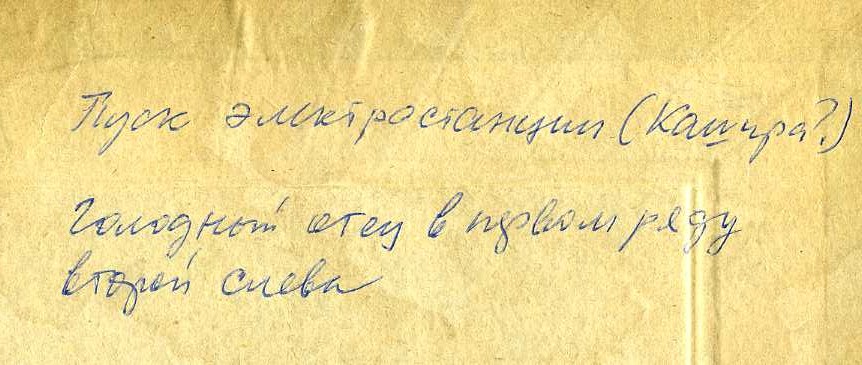 Пуск электростанции (Кашира?)
Голодный отец в первом ряду
второй слева